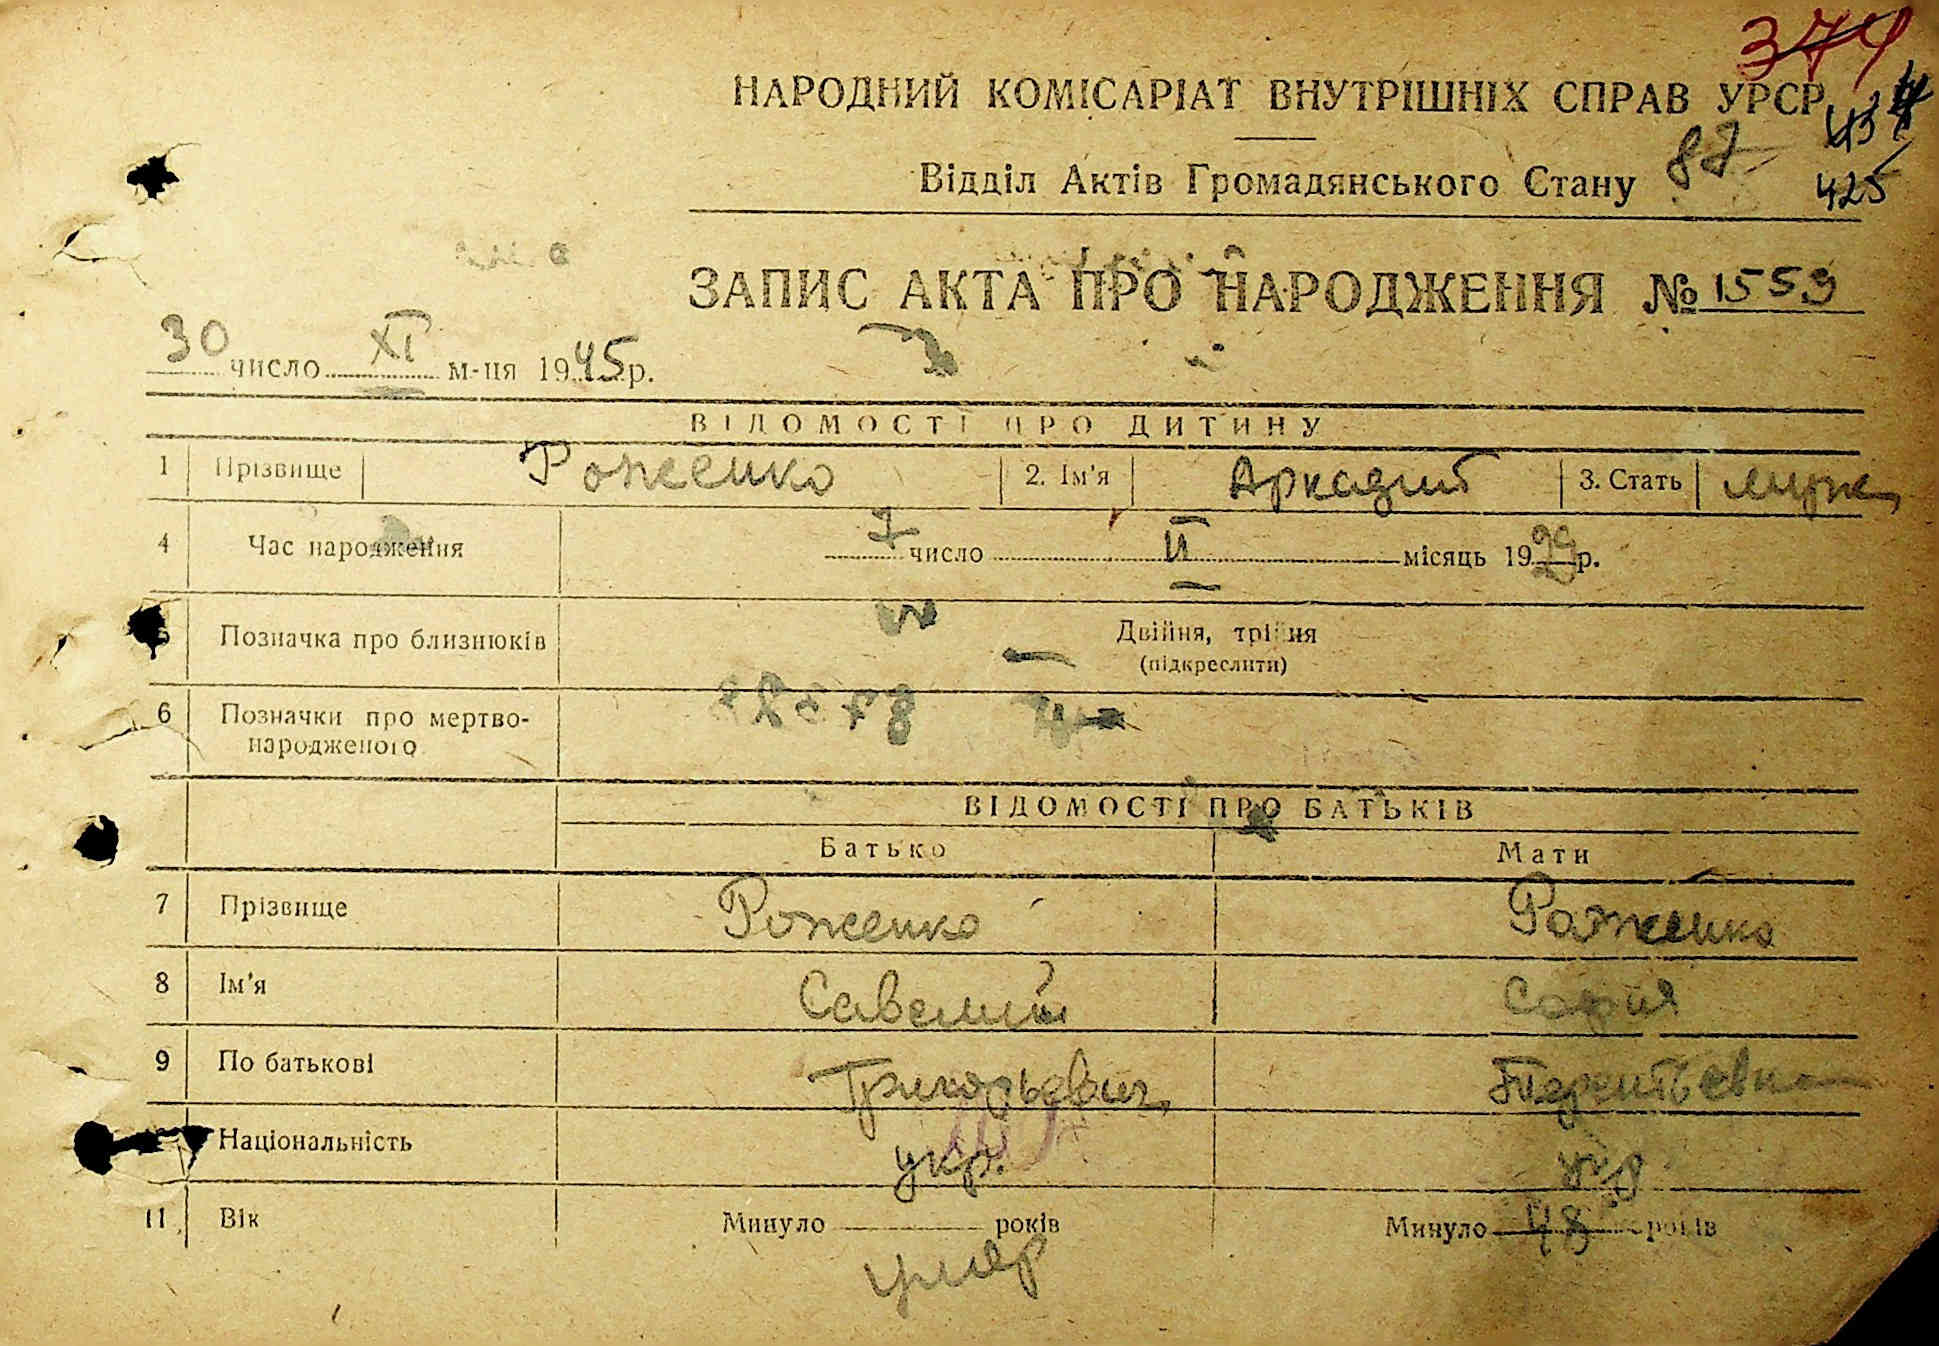 374
НАРОДНИЙ КОМІСАРІАТ ВНУТРІШНІХ СПРАВ УРСР
87
Відділ Актів Громадянського Стану
425
ЗАПИС АКТА ПРО НАРОДЖЕННЯ № 1559
30 число XI м-ця 1945 р.
ВІДОМОСТІ ПРО ДИТИНУ
1 Прізвище Роженко 2. Ім'я Аркадий 3. Стать муж
4 Час народження 7 число II місяць 1929 р.
5 Позначка про близнюків Двійня, трійня
(підкреслити)
6 Позначки про мертво-
народженого
ВІДОМОСТІ ПРО БАТЬКІВ
Батько Мати
7 Прізвище Роженко Роженко
8 Ім'я Савелий София
9 По батькові Григорьевич Терентьевна
Національність укр. укр
11 Вік Минуло років Минуло 48 років
умер